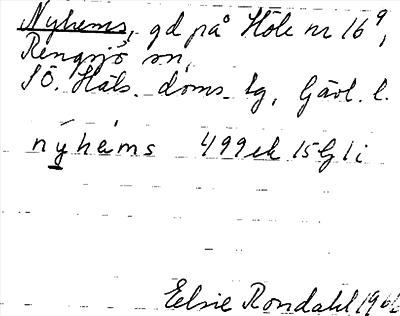 Nyhems, gd på Höle nr 16⁹,
Rengsjö sn,
SÖ. Häls. doms. lg, Gävl. l.
nýhèms 499 ek 15 G 1 i
Elsie Rondahl 196